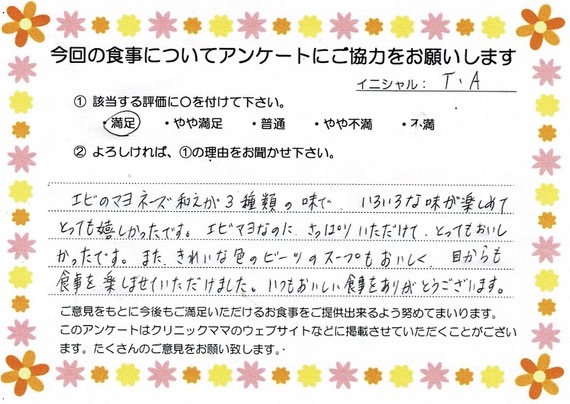 今回の食事についてアンケートにご協力をお願いします
イニシャル： T・A
① 該当する評価に○を付けて下さい。
・満足 ・やや満足 ・普通 ・やや不満 ・不満
② よろしければ、①の理由をお聞かせ下さい。
エビのマヨネーズ和えが3種類の味で、いろいろな味が楽しめて
とっても嬉しかったです。エビマヨなのに、さっぱりいただけて、とってもおいし
かったです。また、きれいな色のビーツのスープもおいしく、目からも
食事を楽しませていただけました。いつもおいしい食事をありがとうございます。
ご意見をもとに今後もご満足いただけるお食事をご提供出来るよう努めてまいります。
このアンケートはクリニックママのウェブサイトなどに掲載させていただくことがござい
ます。たくさんのご意見をお願い致します。